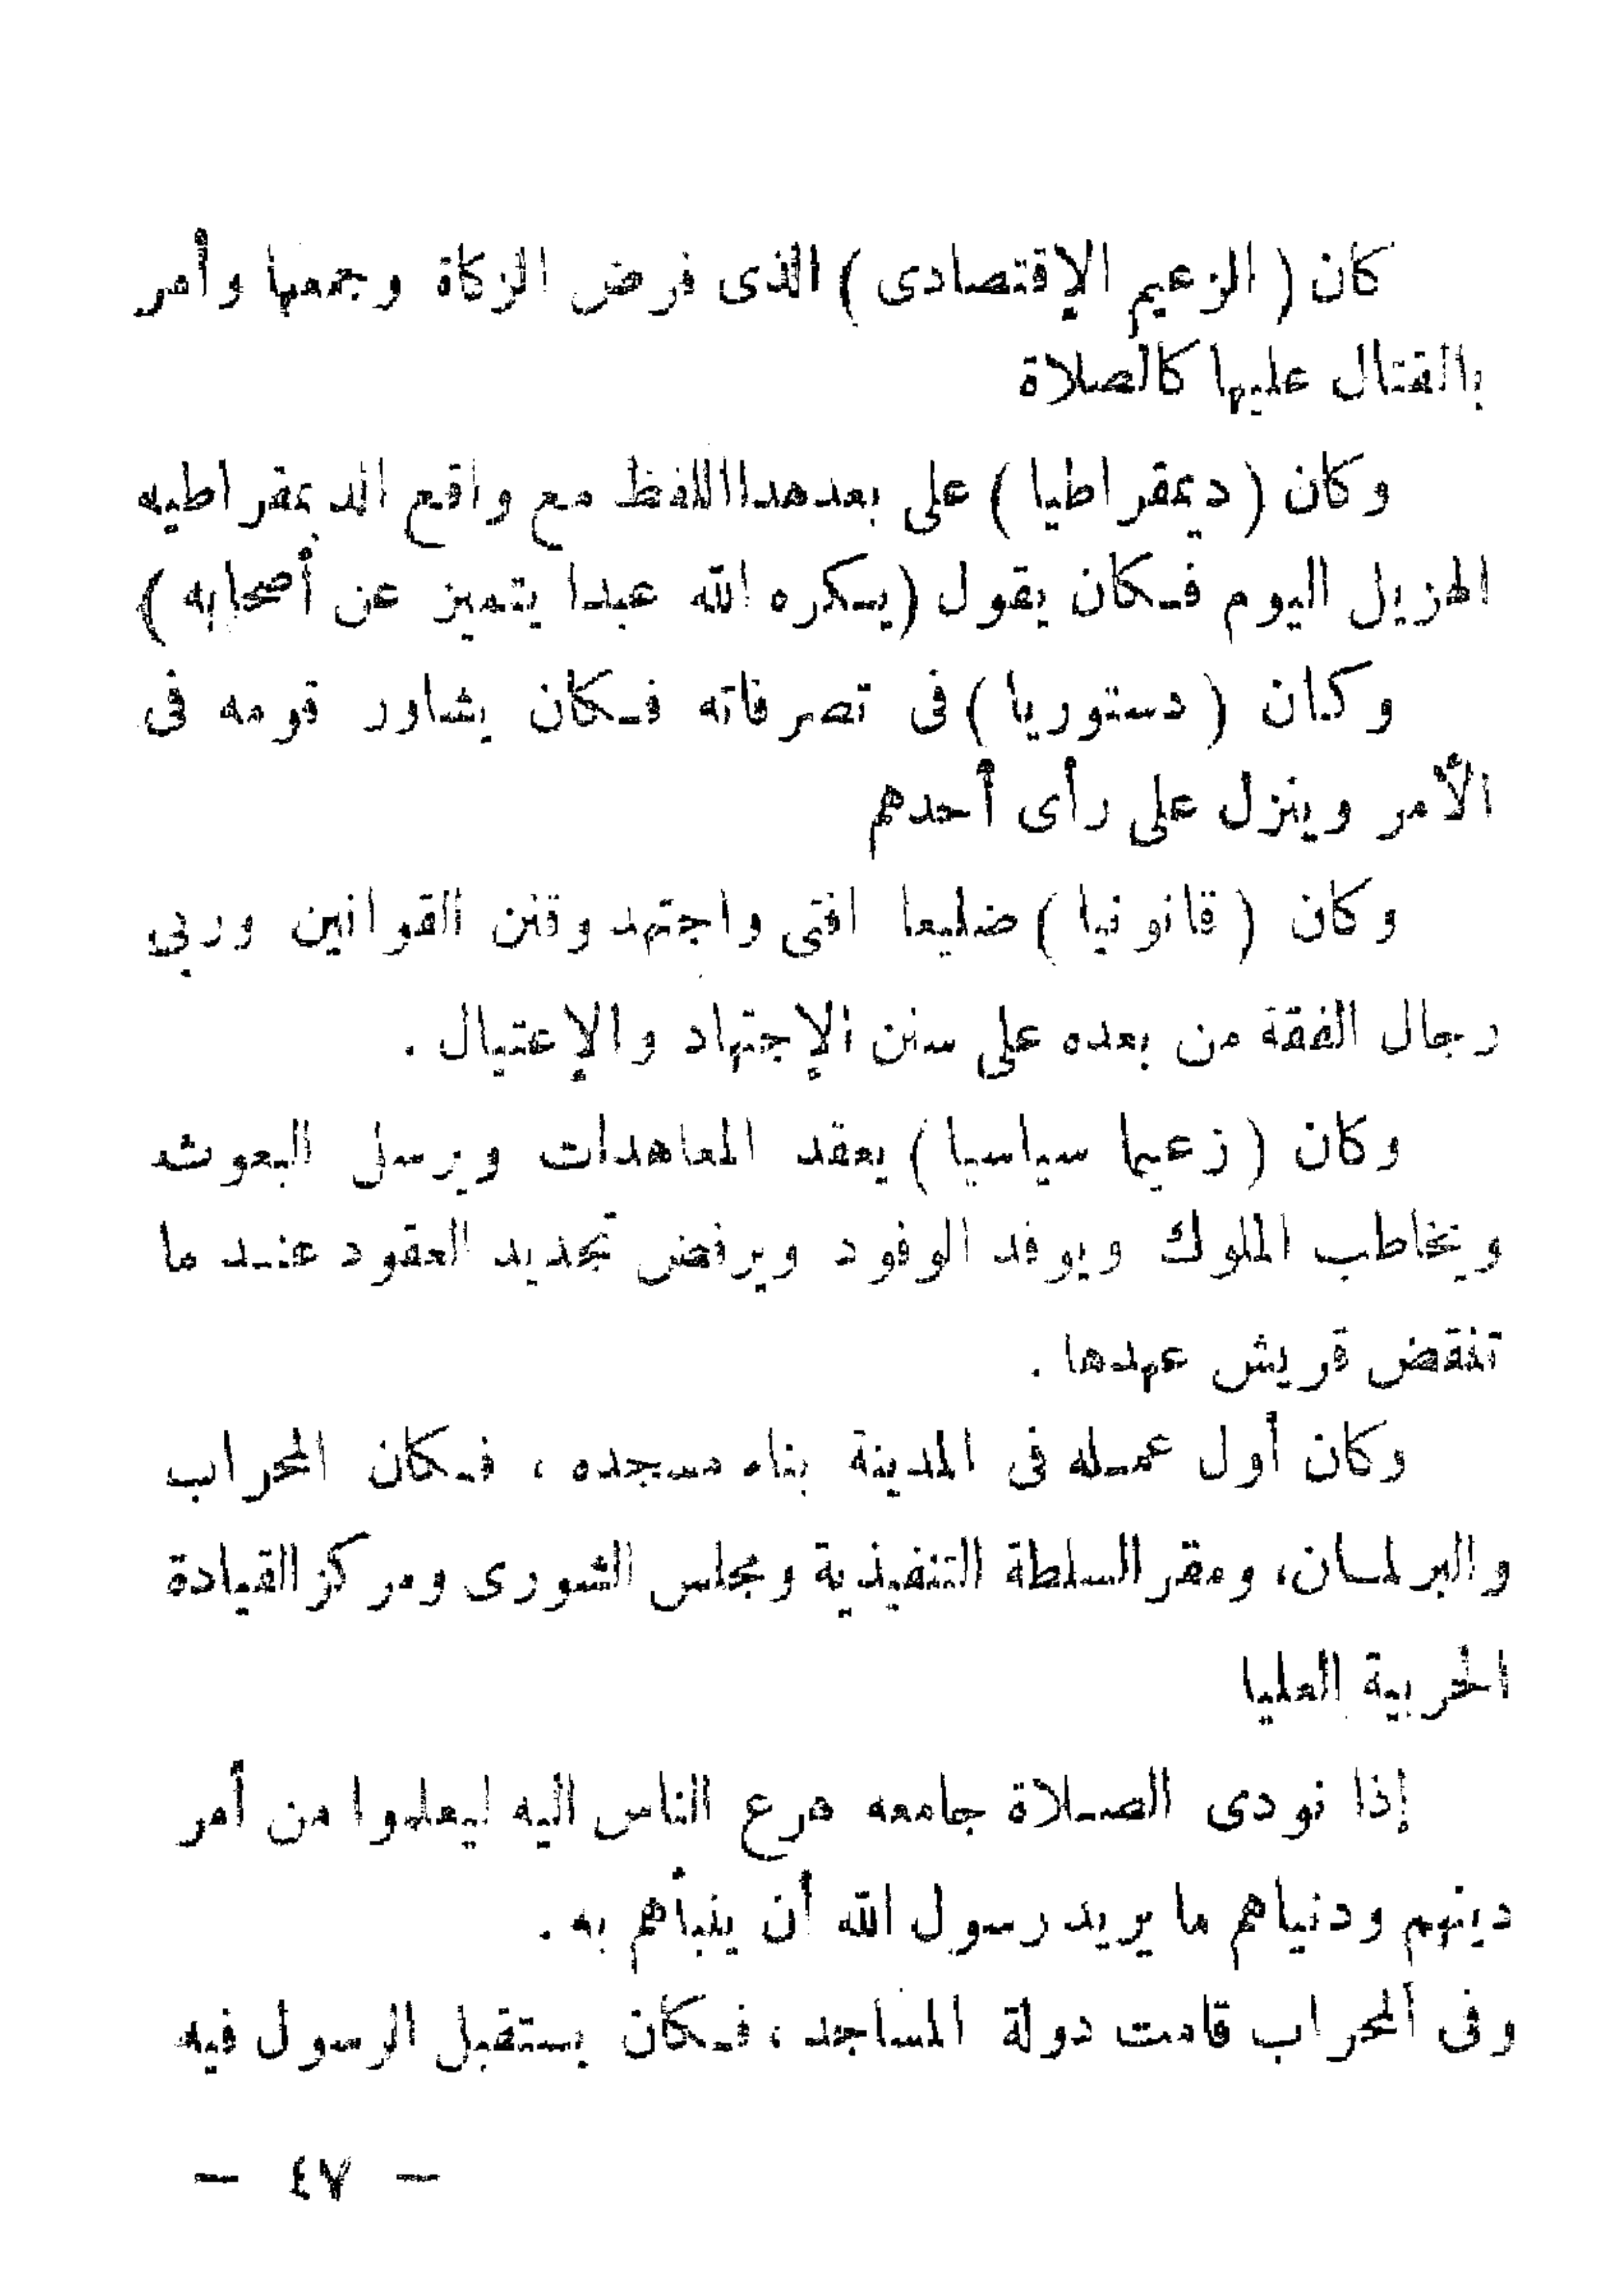 كان ( الزعيم الإقتصادى ) الذى فرض الزكاة وجمعها وأمر
بالقتال عليها كالصلاة
وكان ( ديمقراطيا ) على بعد هذا اللفظ مع واقع الديمقراطيه
الهزيل اليوم فكان يقول ( يكره الله عبدا يتميز عن أصحابه )
وكان ( دستوريا ) فى تصرفاته فكان يشاور قومه فى
الأمر وينزل على رأى أحدهم
وكان ( قانونيا ) ضليعا افتى واجتهد وقنن القوانين وربى
رجال الفقة من بعده على سنن الإجتهاد والإعتيال .
وكان ( زعيما سياسيا ) يعقد المعاهدات ويرسل البعوث
ويخاطب الملوك ويوفد الوفود ويرفض تجديد العقود عند ما
تنقض قريش عهدها .
وكان أول عمله فى المدينة بناء مسجده ، فكان المحراب
والبرلمان، ومقر السلطة التنفيذية ومجلس الشورى ومركز القيادة
الحربية العليا
إذا نودى الصلاة جامعه هرع الناس اليه ليعلموا من أمر
دينهم ودنياهم ما يريد رسول الله أن ينبأهم به .
وفى المحراب قامت دولة المساجد ، فكان يستقبل الرسول فيه
— ٤٧ —